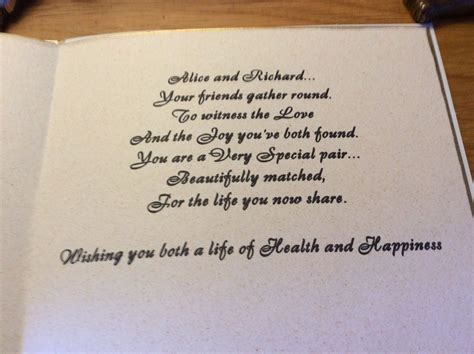 Alice and Richard...
Your friends gather round.
To witness the Love
And the Joy you've both found.
You are a Very Special pair...
Beautifully matched,
For the life you now share.
Wishing you both a life of Health and Happiness